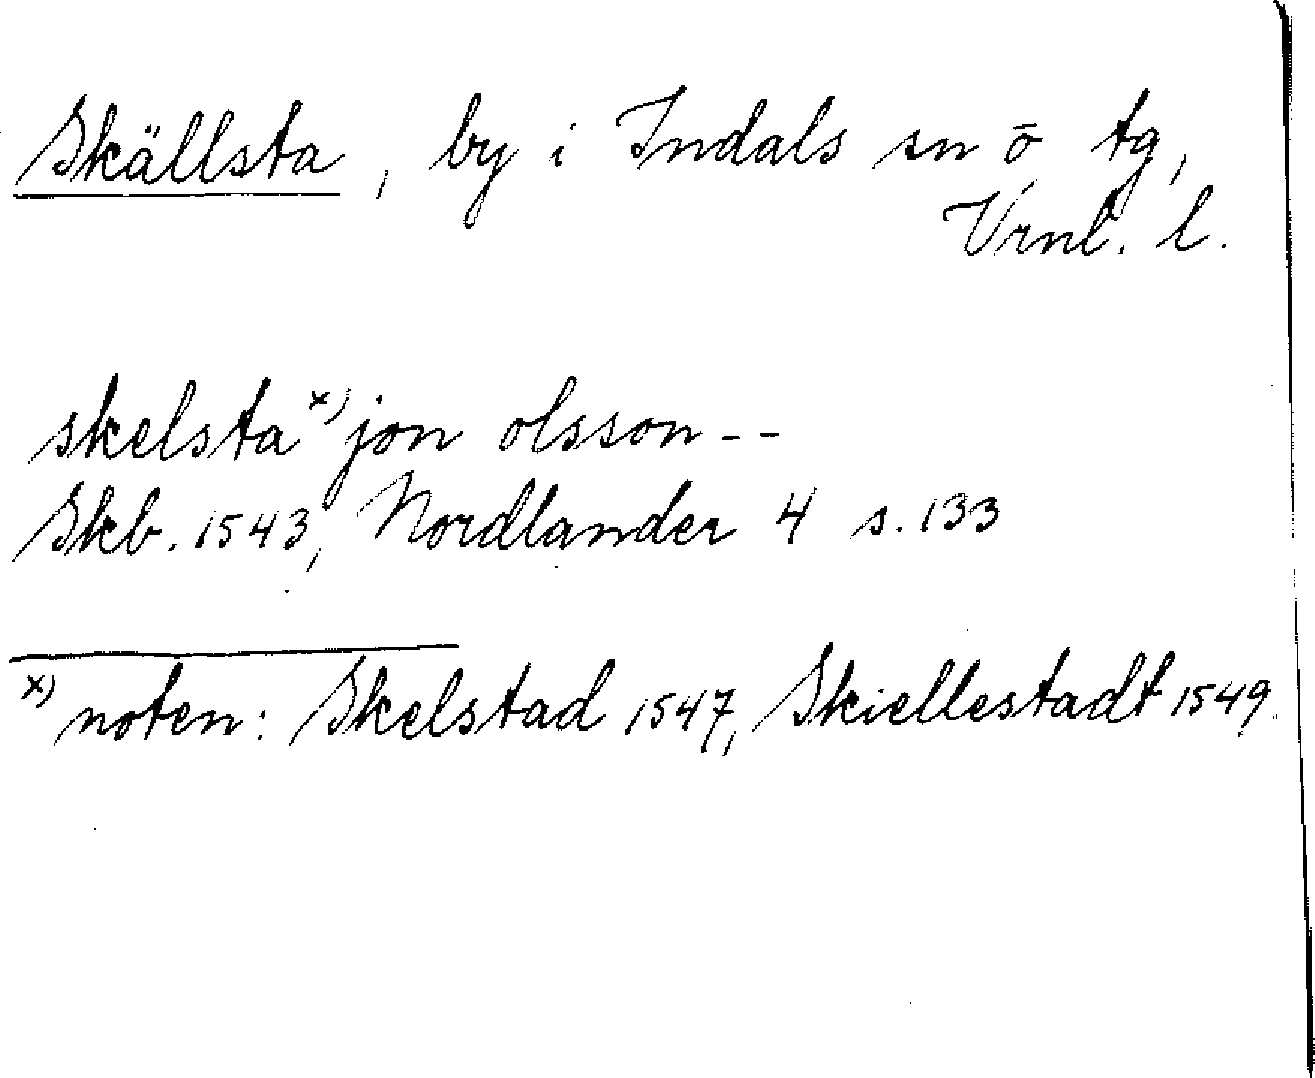 Skällsta, by i Indals sn ō tg,
Vrnl. l.
skelsta x) jon olsson--
Skb. 1543, Nordlander 4 s. 133
x) noten: Skelstad 1547, Skiellestadt 1549.